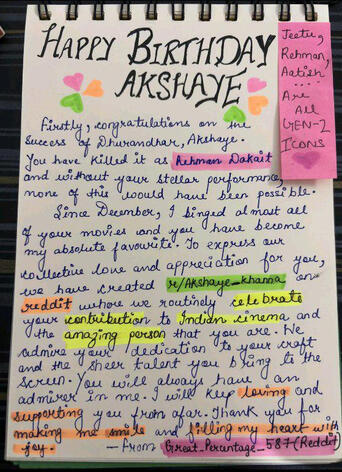 HAPPY BIRTHDAY
AKSHAYE
Jeetu,
Rehman,
Aatish
....
Are
All
GEN-Z
Icons
Firstly, congratulations on the
success of Dhurandhar, Akshaye.
You have killed it as Rehman Dakait
and without your stellar performance,
none of this would have been possible.
Since December, I binged almost all
of your movies and you have become
my absolute favourite. To express our
collective love and appreciation for you,
we have created r/Akshaye_khanna on
reddit where we routinely celebrate
your contribution to Indian cinema and
the amazing person that you are. We
admire your dedication to your craft
and the sheer talent you bring to the
screen. You will always have an
admirer in me. I will keep loving and
supporting you from afar. Thank you for
making me smile and filling my heart with
joy.
- From Great_Percentage_587 (Reddit)